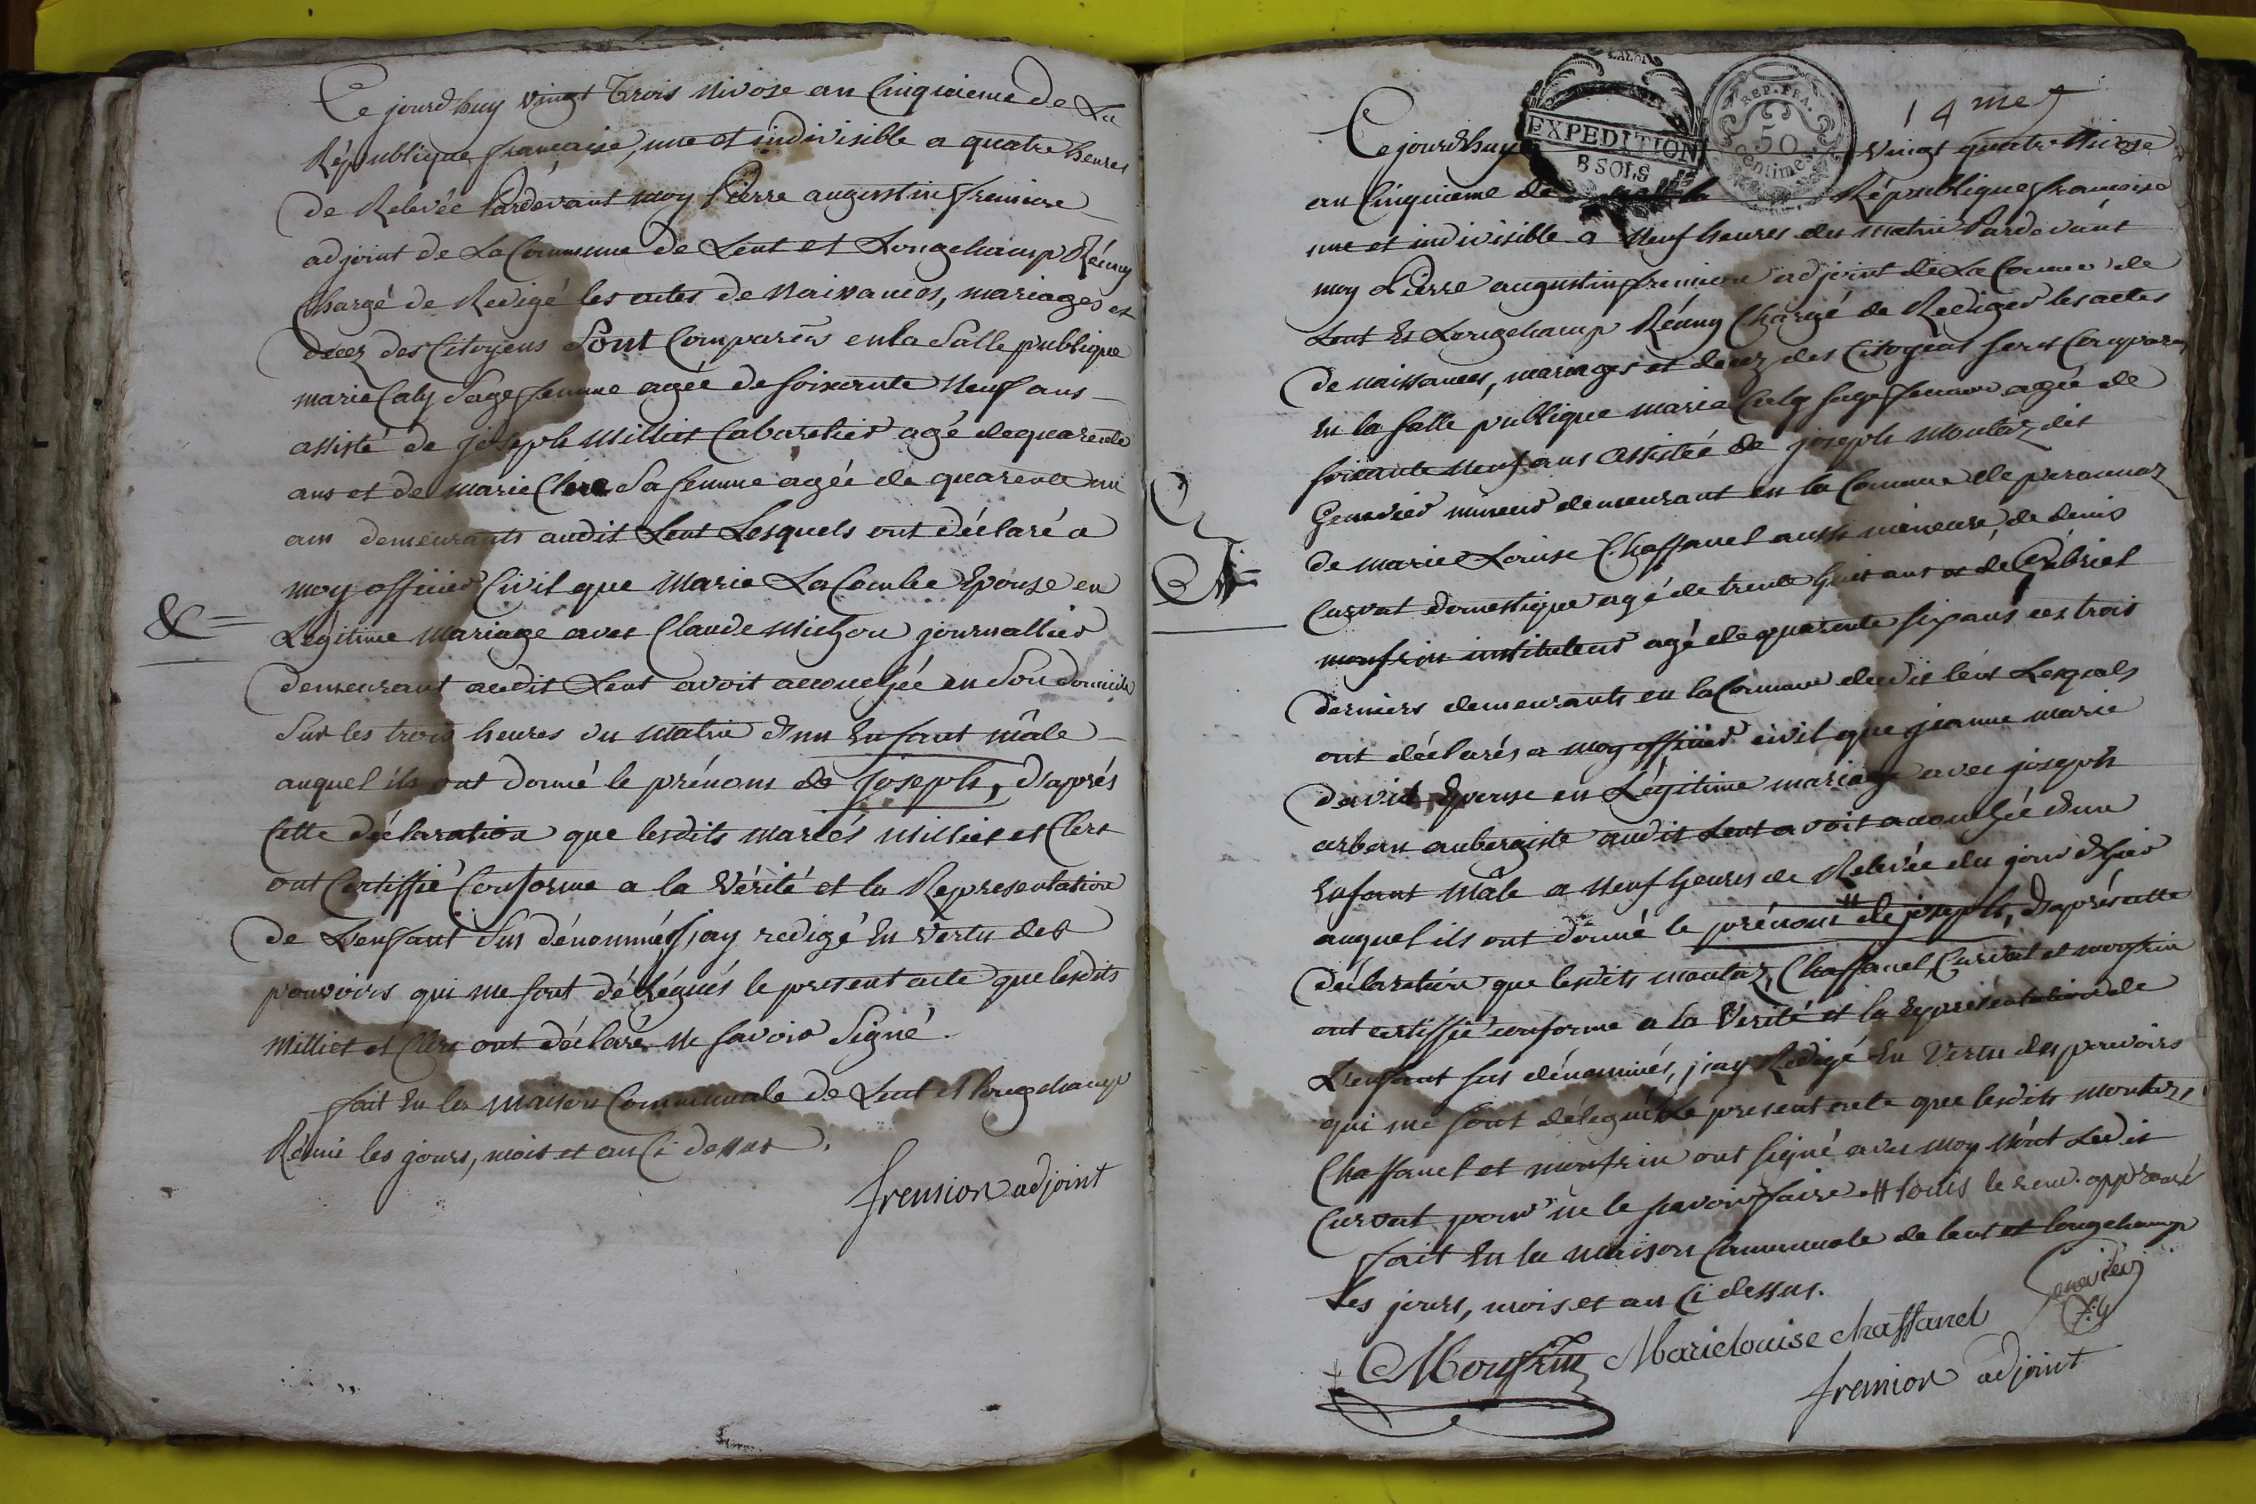 Ce jourd'huy vingt trois nivose an Cinquieme de La
République francaise, une et indivisible a quatre heures
de Relevée Pardevant moy Pierre augustin fremion
adjoint de La Commune de Lent et Longchamp Réuny
Chargé de Redigé les actes de naissances, mariages et
decez des Citoyens Sont Comparus en la Salle publique
marie Caly Sage femme agée de soixante neuf ans
assisté de joseph Milliet Cabaretier agé de quarente
ans et de marie Clerc Sa femme agée de quarente un
ans demeurants audit Lent Lesquels ont déclaré a
moy officier Civil que Marie La Combe Epouse en
& =
Légitime Mariage avec Claude Michon journallier
demeurant audit Lent avoit accouchée en Son domicile
Sur les trois heures du Matin d'un Enfant mâle
auquel ils ont donné le prénom de joseph, d'aprés
Cette déclaration que lesdits mariés Milliet et Clerc
ont Certiffié Conforme a la Vérité et la Representation
de L'enfant Sus dénommés, jay redigé En vertu des
pouvoirs qui me sont délégués le present acte que lesdits
Milliet et Clerc ont déclaré ne savoir Signé.
fait En la maison Communale de Lent et longchamp
Réuni les jours, mois et an Ci dessus.
fremion adjoint
14 me
EXPEDITION
8 SOLS
REP. FRA.
50
Centimes
Ce jourd'huy vingt quatre Nivose
an Cinquieme de la République francaise
une et indivisible a neuf heures du matin Pardevant
moy Pierre augustin fremion adjoint de La Commune de
Lent Et Longchamp Réuny Chargé de Rediger les actes
de naissances, mariages et decez des Citoyens sont Comparus
En la salle publique marie Caly sage femme agée de
soixante neuf ans assistée de joseph Montaz dit
Genevier mineur demeurant en la Commune de peronnaz
de marie Louise Chaffanel aussi mineure, de denis
Curvat domestique agé de trente huit ans et de Gabriel
monfrin instituteur agé de quarente six ans ces trois
derniers demeurants en la Commune dudit lent Lesquels
ont déclarés a moy officier civil que jeanne marie
david Epouse en Légitime mariage avec joseph
arban aubergiste audit Lent avoit accouchée d'un
Enfant Mâle a Neuf heures de Relevée du jour d'hier
auquel ils ont donné le prénom # de joseph, d'aprés cette
déclaration que lesdits montaz, Chaffanel, Curvat et monfrin
ont certiffié conforme a la Verité et la Représentation de
L'enfant sus dénommés, j'ay Redigé En Vertu des pouvoirs
qui me sont délegués Le present acte que lesdits montaz
Chaffanel et monfrin ont signé avec moy Nont Ledit
Curvat pour ne le scavoir faire # Louis le renv. approuvé
fait En la maison Communale de lent et longchamp
Les jours, mois et an Ci dessus.
Genevier
Monfrin Marie louise chaffanel
fremion adjoint